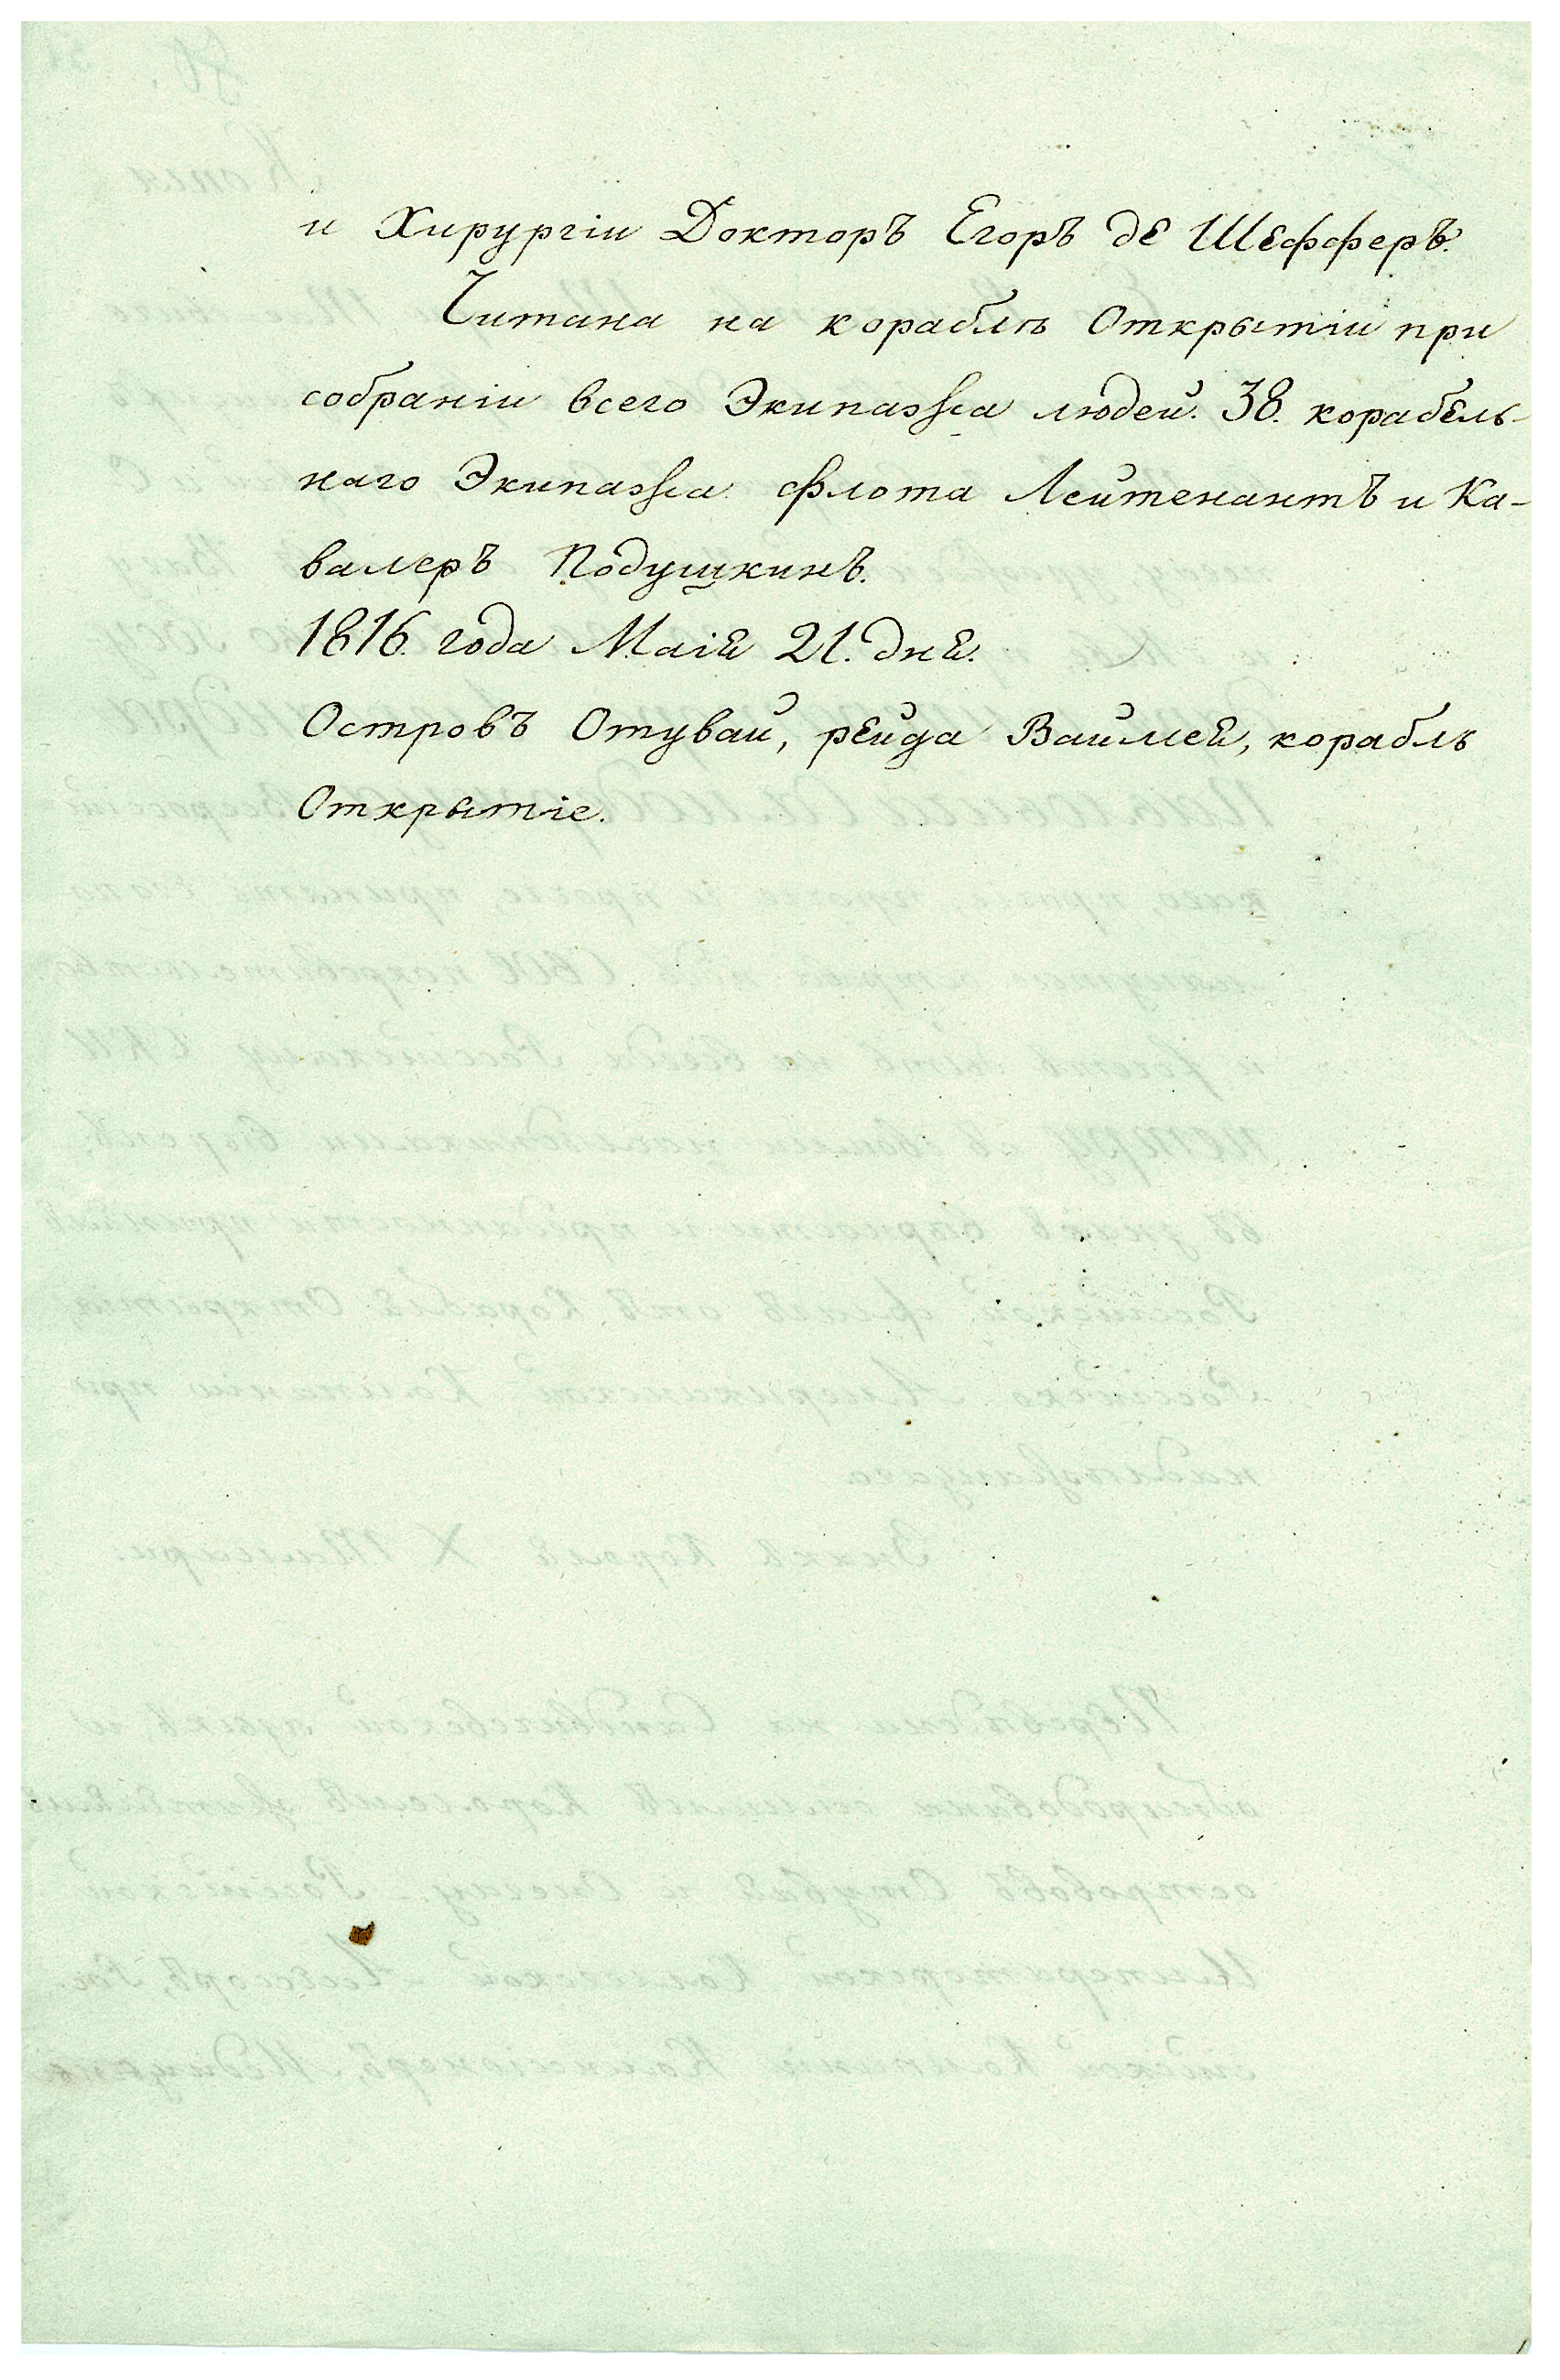 и Хирургіи Докторъ Егоръ де Шефферъ.
Читана на кораблѣ Открытіи при
собраніи всего Экипажа людей. 38. корабель-
наго Экипажа флота Лейтенантъ и Ка-
валеръ Подушкинъ.
1816. года Маія 21. дня.
Островъ Отувай, рейда Ваймея, корабль
Открытіе.